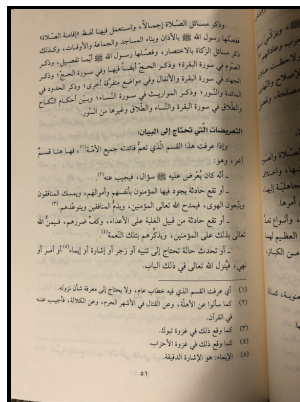 وذكر مسائل الصّلاة إجمالاً، واستعمل فيها لفظ «إقامة الصّلاة»
فصّلها رسول الله ﷺ بالأذان وبناء المساجد والجماعة والأوقات، وكذلك
ذكر مسائل الزكاة بالاختصار، وفصّلها رسول الله ﷺ أيما تفصيل، وذكر
الصّوم في سورة البقرة؛ وذكر الحجّ أيضاً فيها وفي سورة الحجّ؛ وذكر
الجهاد في سورة البقرة والأنفال وفي مواضع متفرّقة أخرى؛ وذكر الحدود في
المائدة والنّور؛ وذكر المواريث في سورة النّساء؛ وبيّن أحكام النّكاح
والطّلاق في سورة البقرة والنّساء والطّلاق وغيرها من السّور.
التعريضات الّتي تحتاج إلى البيان:
وإذا عرفت هذا القسم الّذي تعمّ فائدته جميع الأمّة(١)، فههنا قسمٌ
آخر، وهو:
ـ أنّه كان يُعرَض عليه ﷺ سؤال، فيجيب عنه(٢)
ـ أو تقع حادثة يجود فيها المؤمنون بأنفسهم وأموالهم، ويمسك المنافقون
ويتّبعون الهوى، فيمدح الله تعالى المؤمنين، ويذمّ المنافقين ويتوعّدهم(٣)
ـ أو تقع حادثة من قبيل الغلبة على الأعداء، وكفّ ضررهم، فيمنّ الله
تعالى بذلك على المؤمنين، ويذكّرهم بتلك النّعمة(٤)
ـ أو تحدث حالة تحتاج إلى تنبيه أو زجر أو إشارة أو إيماء(٥) أو أمر أو
نهي، فيُنزل الله تعالى في ذلك الباب.
(١) أي عرفت القسم الذي فيه خطاب عام، ولا يحتاج إلى معرفة شأن نزوله.
(٢) كما سألوا عن الأهلّة، وعن القتال في الأشهر الحرم، وعن الكلالة، فأجيب عنه
في القرآن.
(٣) كما وقع ذلك في غزوة تبوك.
(٤) كما وقع ذلك في غزوة الأحزاب.
(٥) الإيماء: هو الإشارة الدقيقة.
٥١